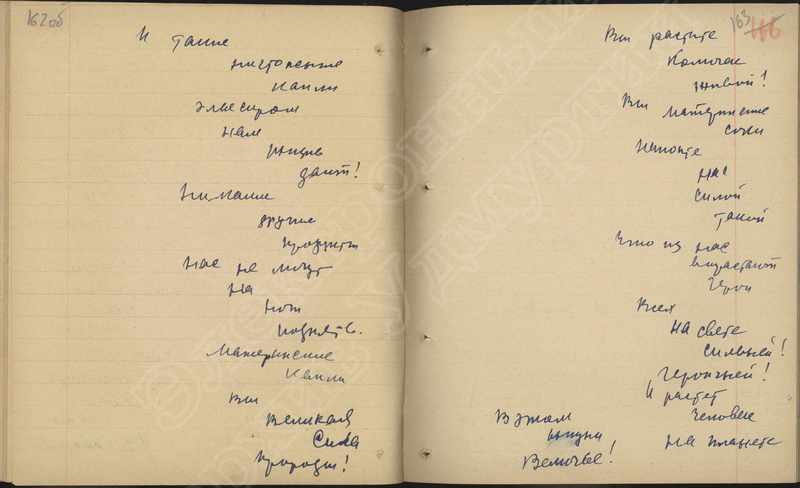 162об
И такие
ничтожные
капли
эликсиром
нам
жизнь
дают!
Никакие
другие
продукты
Нас не могут
на
ноги
поднять.
Материнские
капли
Вы
великая
Сила
природы!
163
Вы растите
живой!
Вы материнские
соки
напоите
нас
силой
такой
Что из нас
вырастают
Герои
Всех
на свете
сильней!
Героичней!
И растет
Человек
на планете
В этом
жизни
Величье!